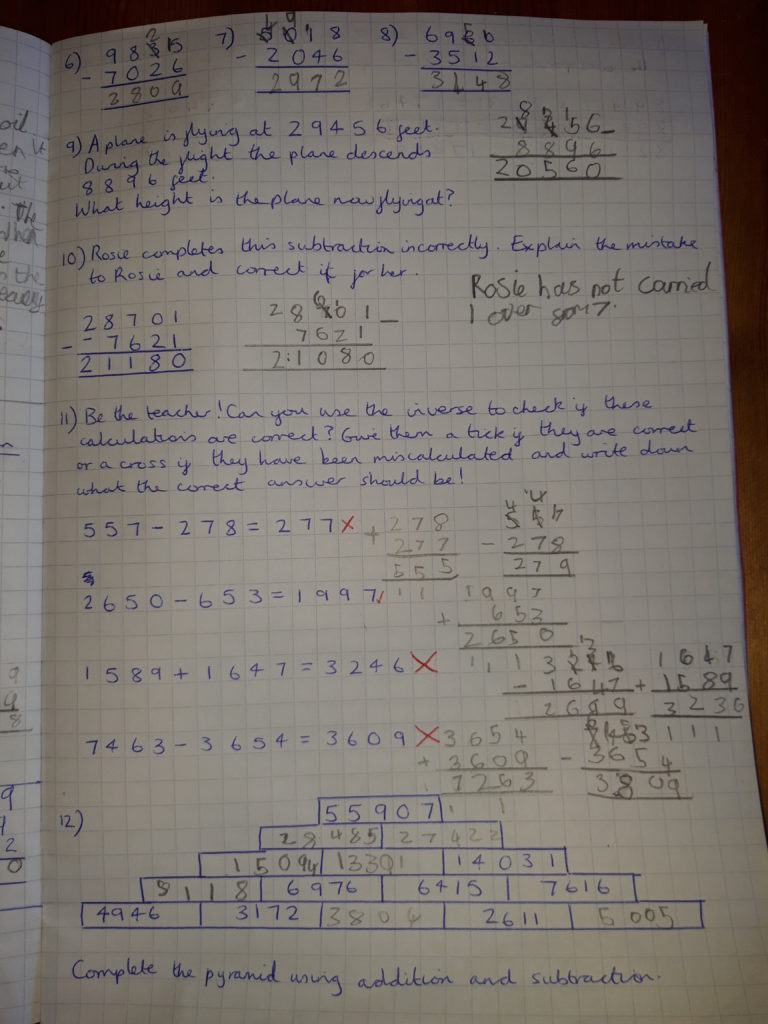 6) 9835
- 7026
2809
7) 5018
- 2046
2972
8) 6920
- 3512
3148
9) A plane is flying at 29456 feet.
During the flight the plane descends
8896 feet.
What height is the plane now flying at?
29456
8896
20560
10) Rosie completes this subtraction incorrectly. Explain the mistake
to Rosie and correct it for her.
Rosie has not carried
1 over
28701
- 7621
21180
28701
7621
21080
11) Be the teacher! Can you use the inverse to check if these
calculations are correct? Give them a tick if they are correct
or a cross if they have been miscalculated and write down
what the correct answer should be!
557 - 278 = 277 x
+ 278
277
555
557
- 278
279
2650 - 653 = 1997 ✓
1997
+ 653
2650
1589 + 1647 = 3246 X
- 1647
1647
+ 1589
3236
7463 - 3654 = 3609 X
3654
+ 3609
7263
7463
- 3654
3809
12)
55907
28485 27422
15094 13391 14031
8118 6976 6415 7616
4946 3172 3804 2611 5005
Complete the pyramid using addition and subtraction.